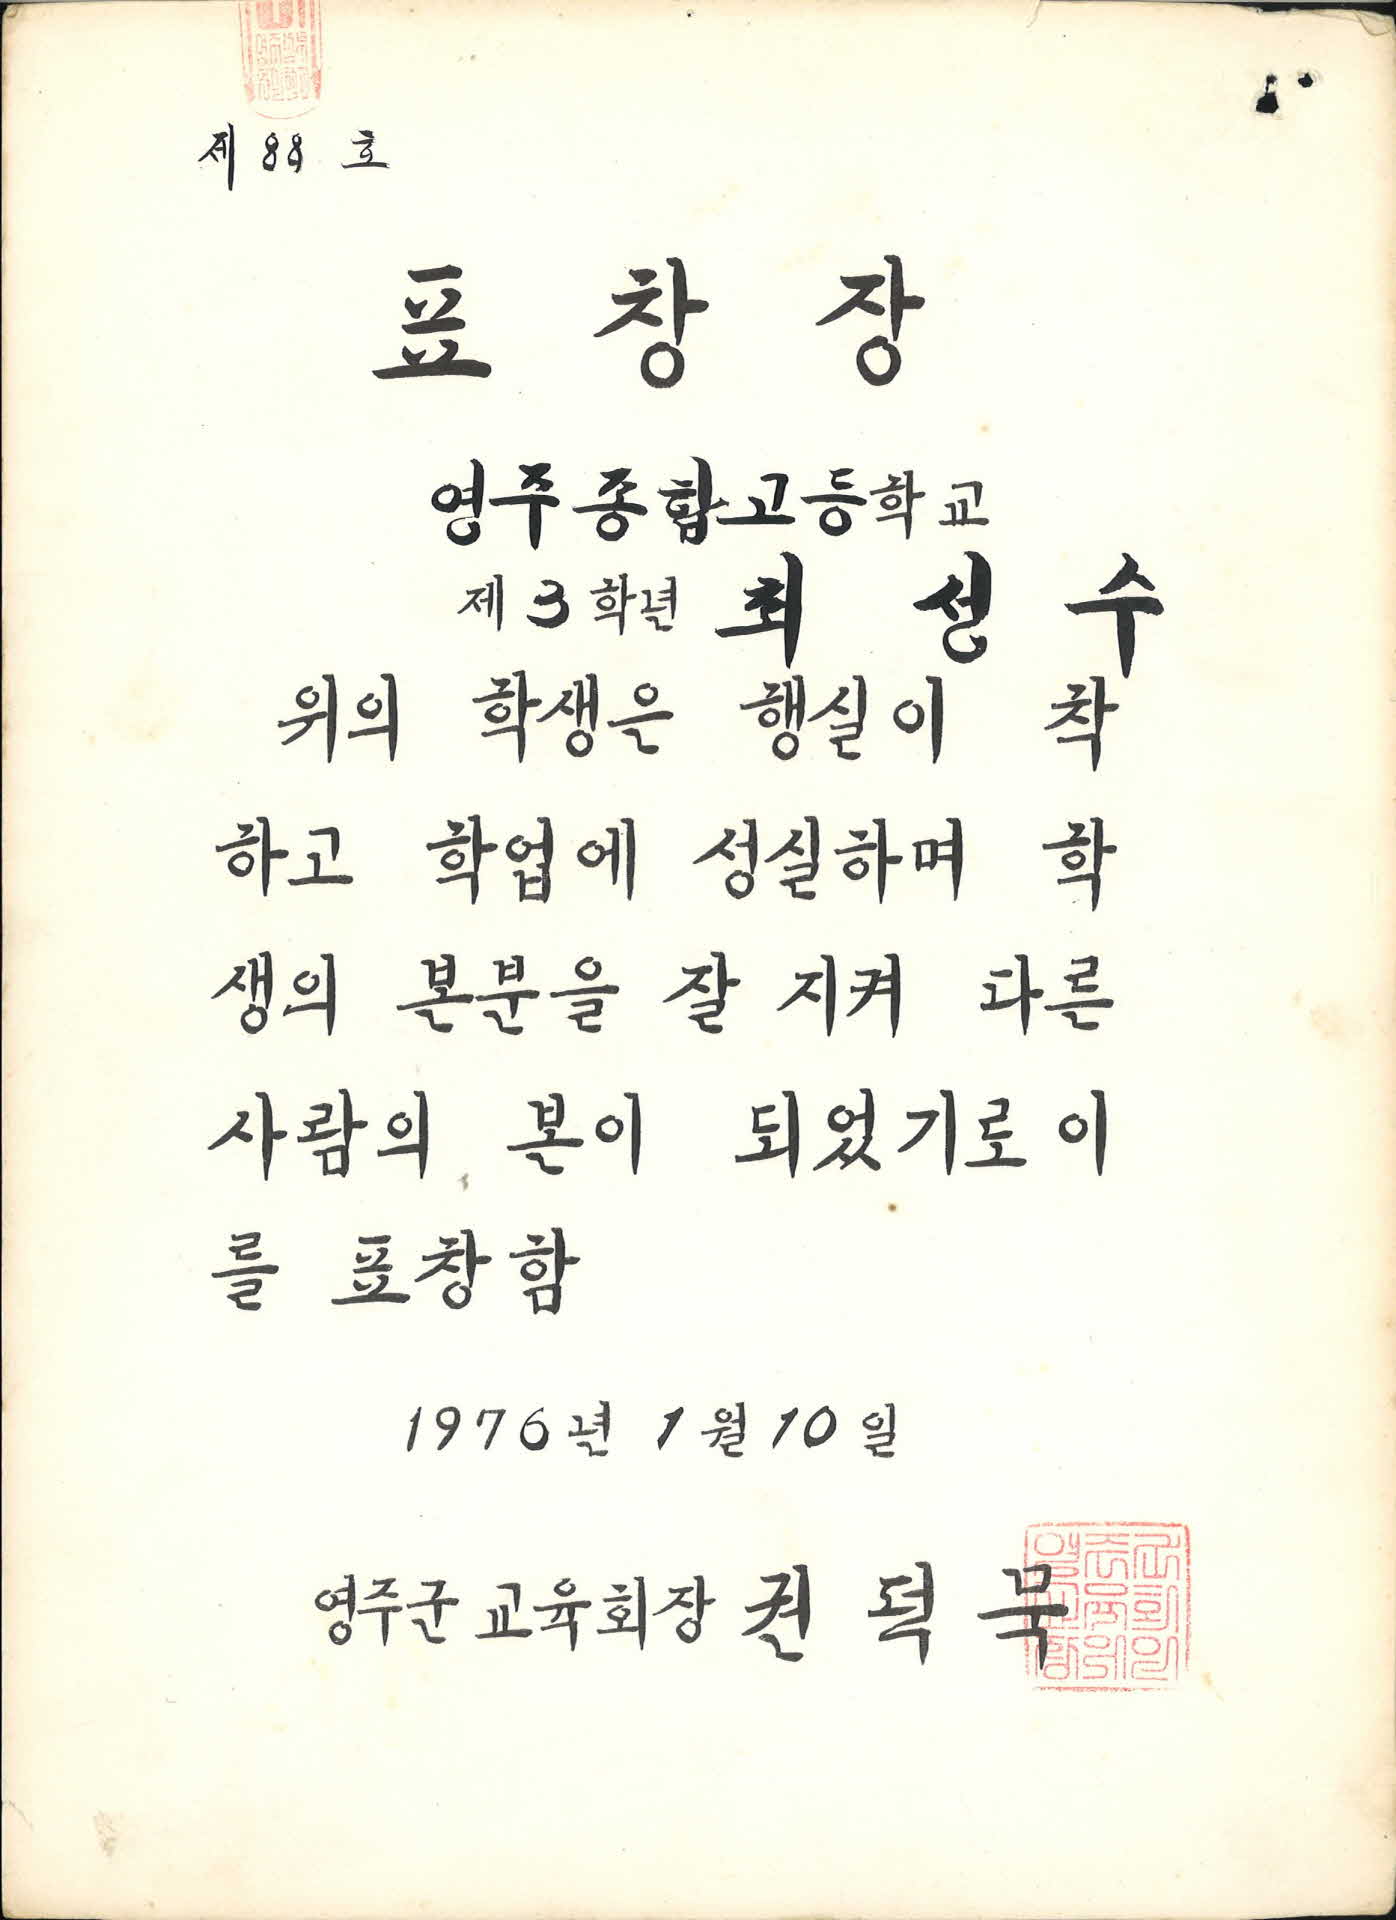 제 88 호
표 창 장
영주종합고등학교
제 3 학년 최 성 수
위의 학생은 행실이 착
하고 학업에 성실하며 학
생의 본분을 잘 지켜 다른
사람의 본이 되었기로 이
를 표창함
1976년 1월 10일
영주군 교육회장 권 덕 묵